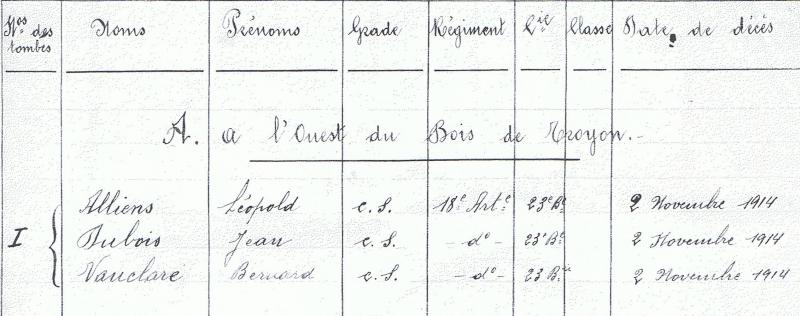 Nos des tombes Noms Prénoms Grade Régiment Cie Classe Date de décès
A. a l'Ouest du Bois de Troyon.-
Alliens Léopold c.S. 18e Arte 23e Be 2 Novembre 1914
I Dubois Jean c.S. -do- 23e Be 2 Novembre 1914
Vauclare Bernard c.S. -do- 23 Bie 2 Novembre 1914